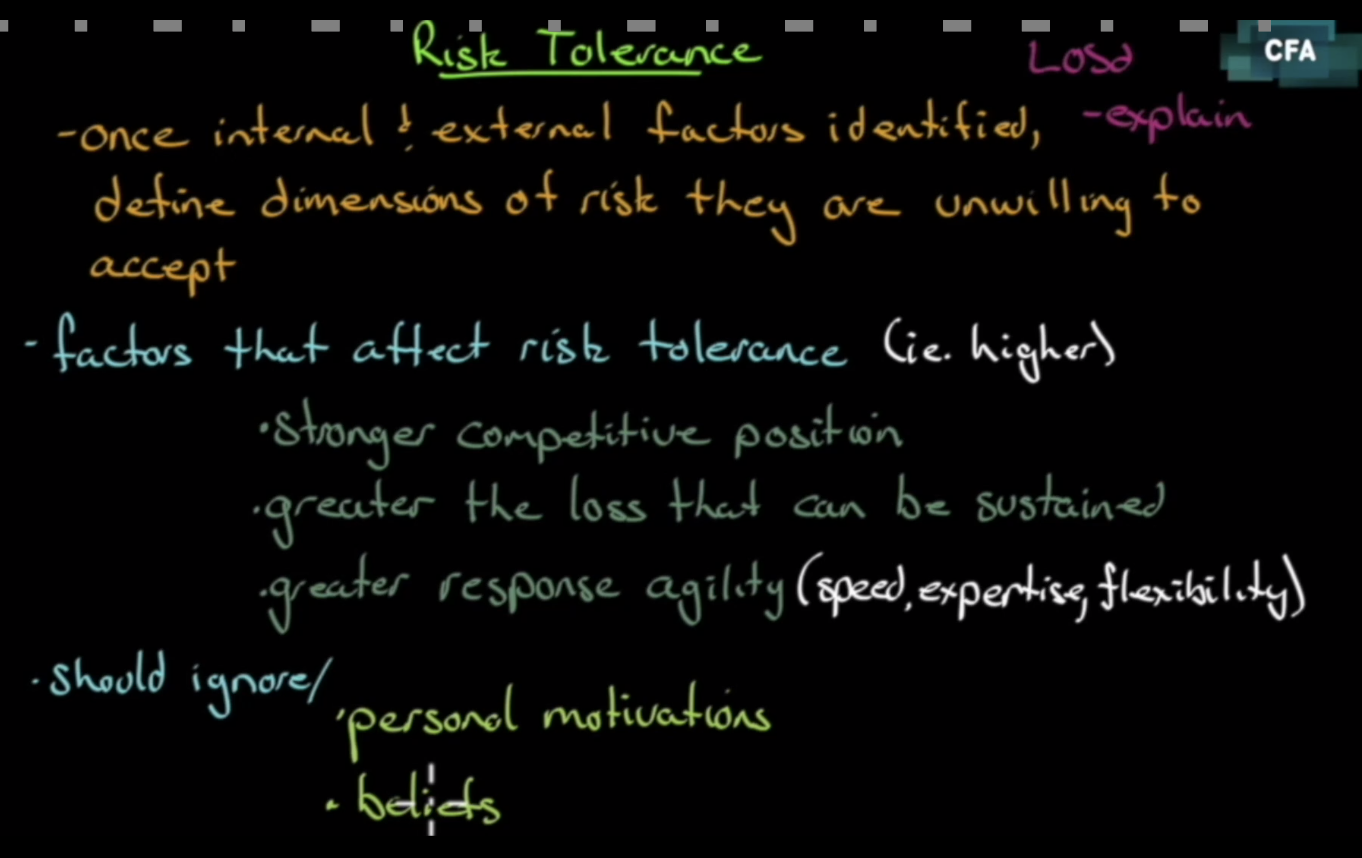 Risk Tolerance
LOSd
CFA
- once internal & external factors identified,
- explain
define dimensions of risk they are unwilling to
accept
- factors that affect risk tolerance (ie. higher)
• Stronger competitive position
• greater the loss that can be sustained
• greater response agility (speed, expertise, flexibility)
• should ignore/
• personal motivations
• beliefs